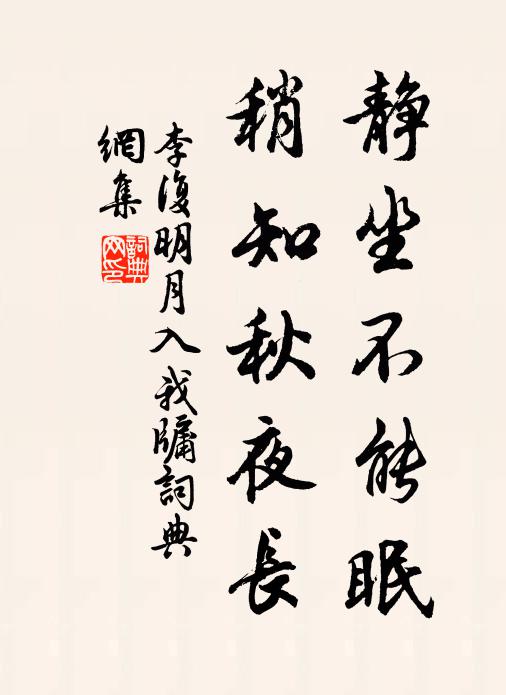 静坐不能眠
稍知秋夜長
李復明月入我牖詞典
網集
詞典
网印